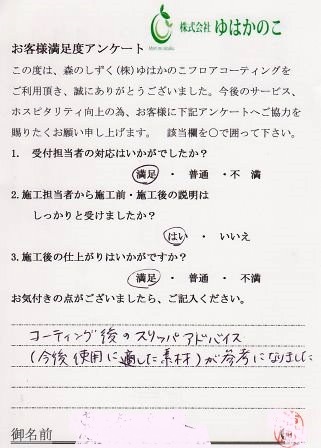 株式会社 ゆはかのこ
お客様満足度アンケート
この度は、森のしずく(株)ゆはかのこフロアコーティングを
ご利用頂き、誠にありがとうございました。今後のサービス、
ホスピタリティ向上の為、お客様に下記アンケートへご協力を
賜りたくお願い申し上げます。 該当欄を〇で囲って下さい。
1. 受付担当者の対応はいかがでしたか?
満足 ・ 普通 ・不 満
2.施工担当者から施工前・施工後の説明は
しっかりと受けましたか?
はい ・ いいえ
3.施工後の仕上がりはいかがですか?
満足 ・ 普通 ・ 不満
お気付きの点がございましたら、ご記入ください。
コーティング後のスリッパアドバイス
(今後使用に適した素材)が参考になりました
御名前